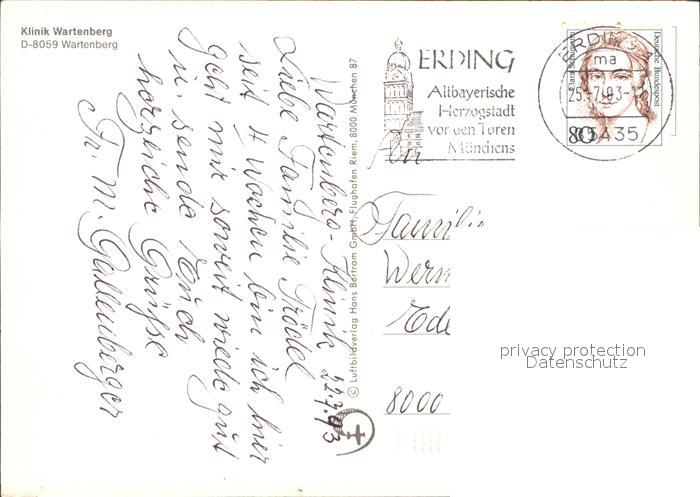 Klinik Wartenberg
D-8059 Wartenberg
Wartenberg-Klinik 22.7.93
Liebe Familie Trödel
seit 4 Wochen bin ich hier
geht mir soweit wieder gut
u. sende Euch
herzliche Grüsse
Fr. M. Gallenberger
© Luftbildverlag Hans Bertram GmbH, Flughafen Riem, 8000 München 87
ERDING
Altbayerische
Herzogstadt
vor den Toren
Münchens
ERDING 1
ma
25.-7.93-12
85435
Deutsche Bundespost
80
An
Familie
Wern
Ede
8000
privacy protection
Datenschutz